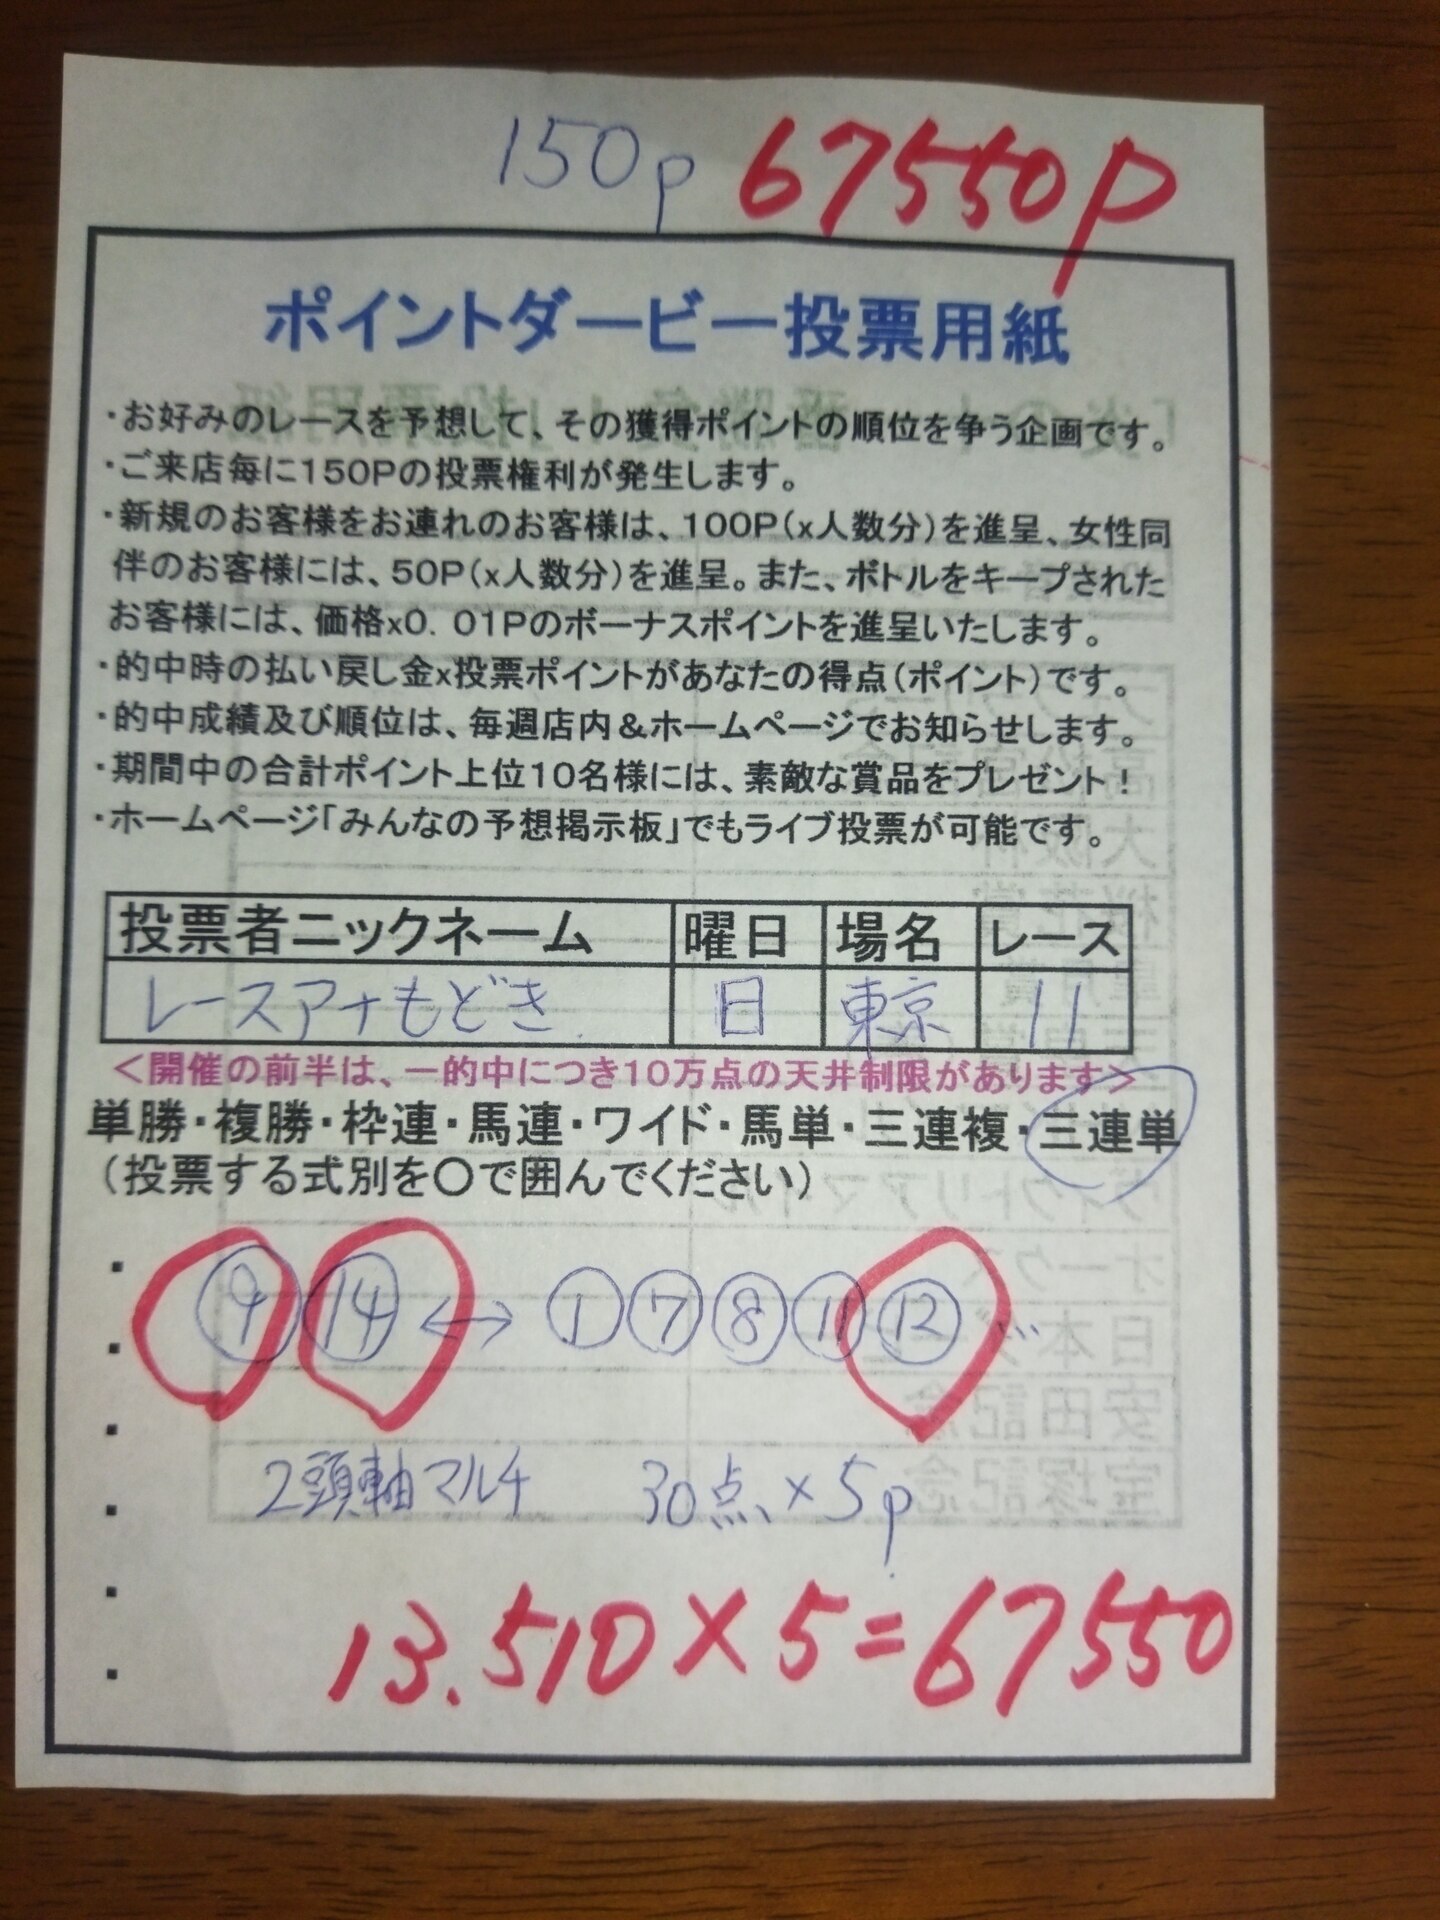 150p 67550P
ポイントダービー投票用紙
・お好みのレースを予想して、その獲得ポイントの順位を争う企画です。
・ご来店毎に150Pの投票権利が発生します。
・新規のお客様をお連れのお客様は、100P(x人数分)を進呈、女性同
伴のお客様には、50P(x人数分)を進呈。また、ボトルをキープされた
お客様には、価格x0.01Pのボーナスポイントを進呈いたします。
・的中時の払い戻し金x投票ポイントがあなたの得点(ポイント)です。
・的中成績及び順位は、毎週店内&ホームページでお知らせします。
・期間中の合計ポイント上位10名様には、素敵な賞品をプレゼント!
・ホームページ「みんなの予想掲示板」でもライブ投票が可能です。
投票者ニックネーム 曜日 場名 レース
レースアナもどき 日 東京 11
<開催の前半は、一的中につき10万点の天井制限があります>
単勝・複勝・枠連・馬連・ワイド・馬単・三連複・三連単
(投票する式別を〇で囲んでください)
⑨ ⑭ ↔ ① ⑦ ⑧ ⑪ ⑫
2頭軸マルチ 30点×5p
13.510×5=67550